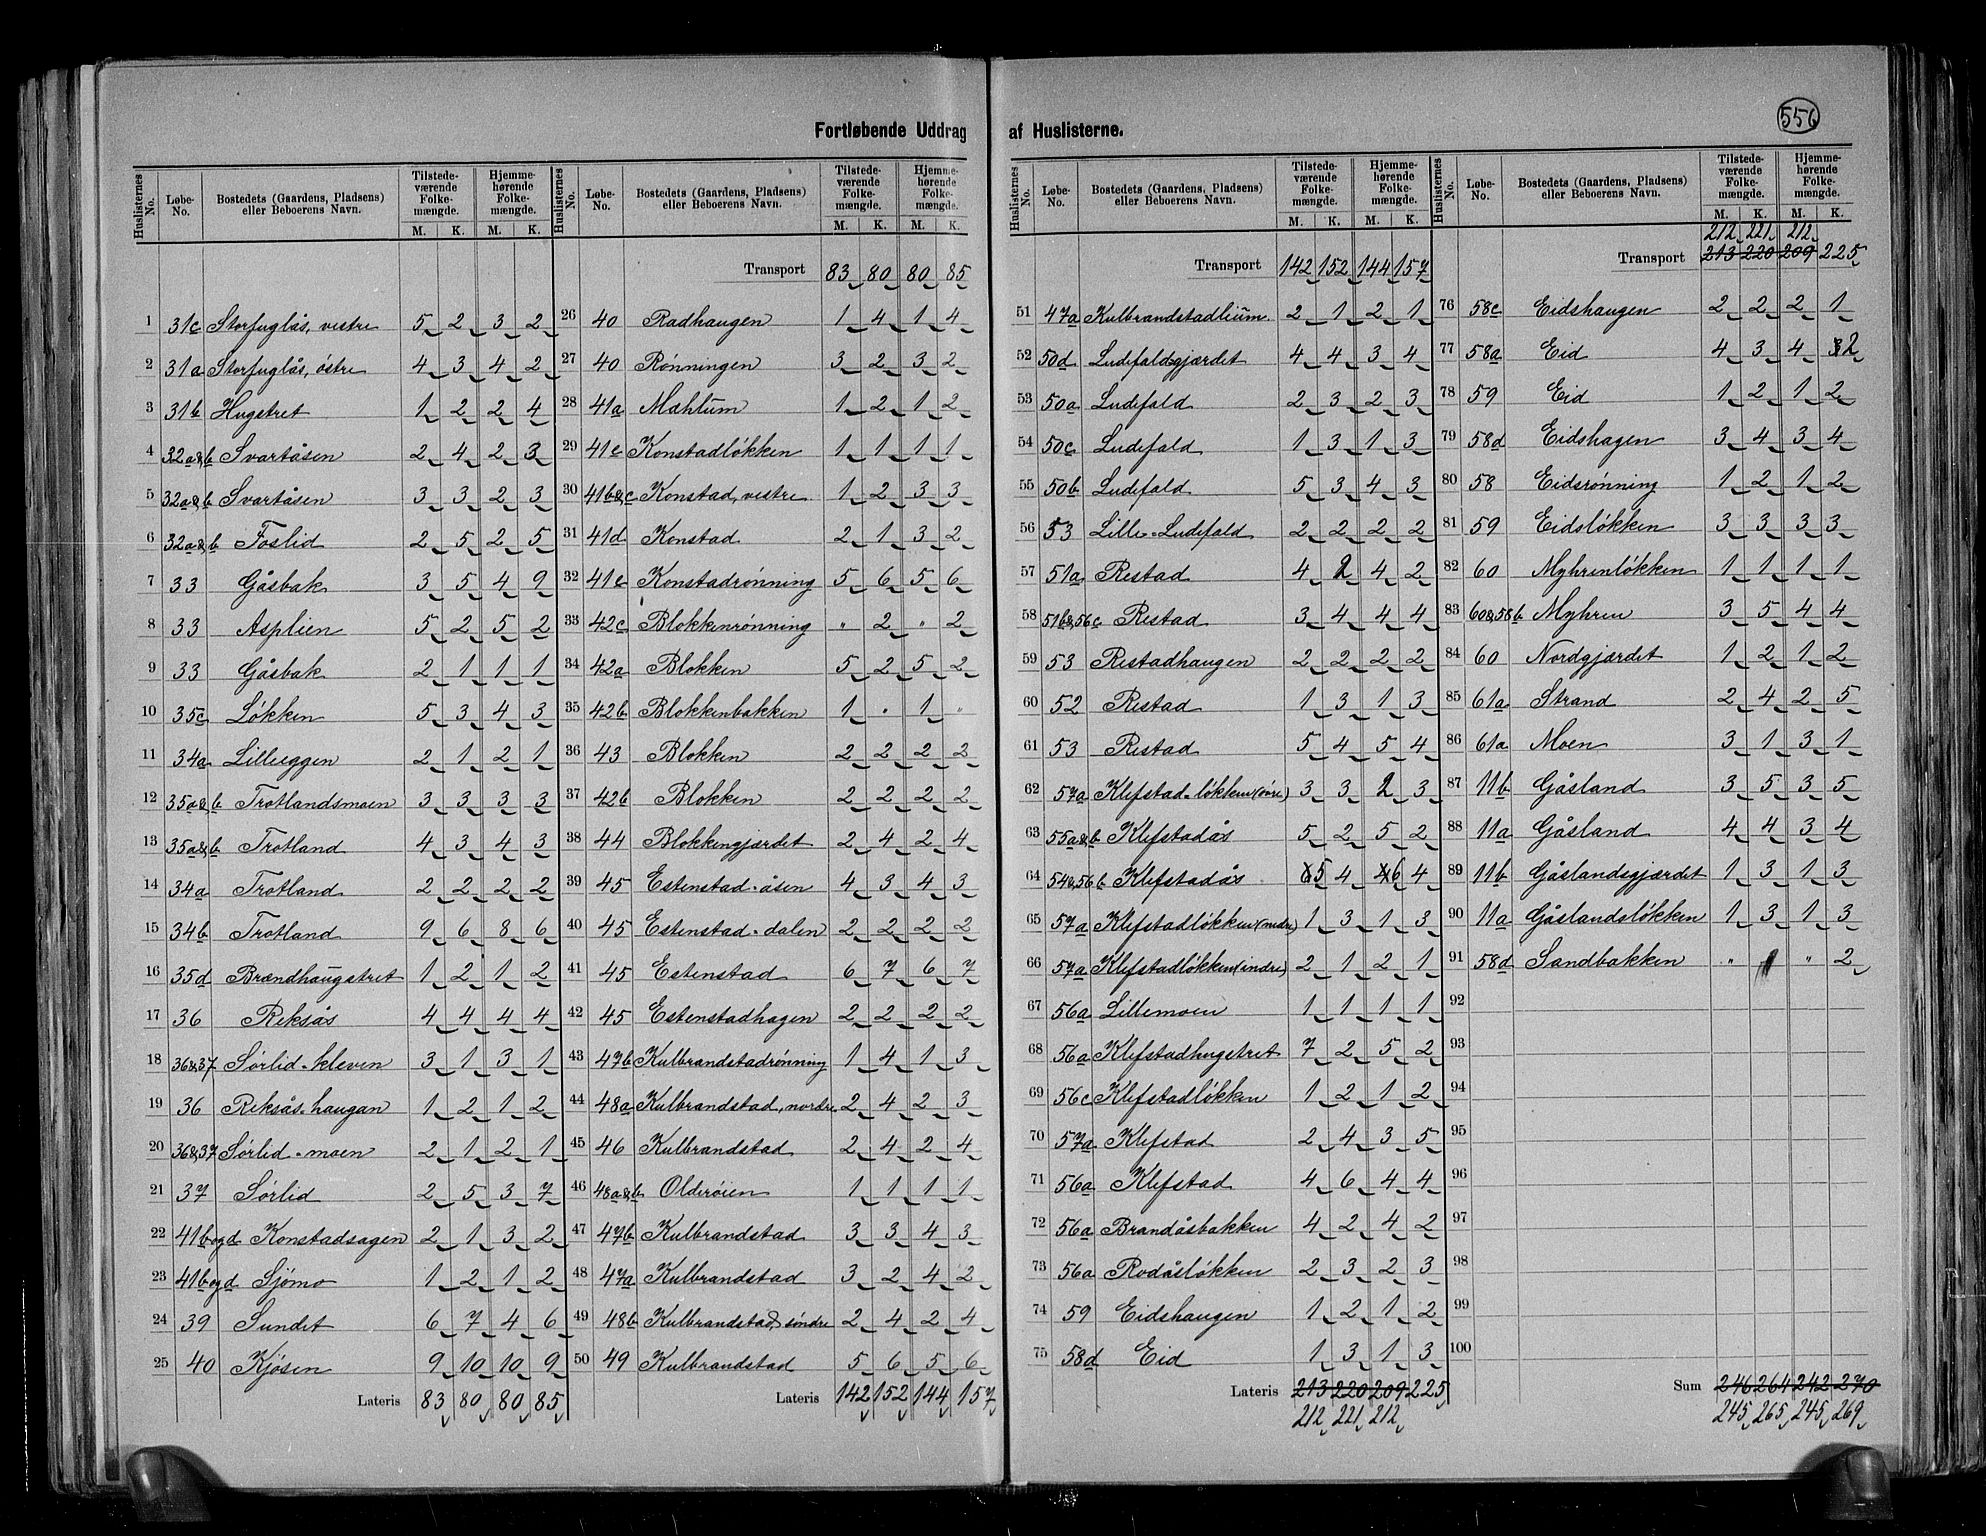 556
Fortløbende Uddrag af Huslisterne.
Huslisternes No. Løbe-No. Bostedets (Gaardens, Pladsens) eller Beboerens Navn. Tilstedeværende Folkemængde. M. K. Hjemmehørende Folkemængde. M. K.
1 31c Storfuglås, vestre 5 2 3 2
2 31a Storfuglås, østre 4 3 4 2
3 31b Hugstret 1 2 2 4
4 32a&b Svartåsen 2 4 2 3
5 32a&b Svartåsen 3 3 2 3
6 32a&b Foslid 2 5 2 5
7 33 Gåsbak 3 5 4 9
8 33 Asplien 5 2 5 2
9 33 Gåsbak 2 1 1 1
10 35c Løkken 5 3 4 3
11 34a Lilleeggen 2 1 2 1
12 35a&b Trotlandsmoen 3 3 3 3
13 35a&b Trotland 4 3 4 3
14 34a Trotland 2 2 2 2
15 34b Trotland 9 6 8 6
16 35d Brændhaugstret 1 2 1 2
17 36 Reksås 4 4 4 4
18 36&37 Sørlid-kleven 3 1 3 1
19 36 Reksås-haugan 1 2 1 2
20 36&37 Sørlid-moen 2 1 2 1
21 37 Sørlid 2 5 3 7
22 41b og d Konstadsagen 2 1 3 2
23 41b og d Sjømo 1 2 1 2
24 39 Sundet 6 7 4 6
25 40 Kjøsen 9 10 10 9
Lateris 83 80 80 85
Huslisternes No. Løbe-No. Bostedets (Gaardens, Pladsens) eller Beboerens Navn. Tilstedeværende Folkemængde. M. K. Hjemmehørende Folkemængde. M. K.
Transport 83 80 80 85
26 40 Radhaugen 1 4 1 4
27 40 Rønningen 3 2 3 2
28 41a Mahlum 1 2 1 2
29 41c Konstadløkken 1 1 1 1
30 41b&c Konstad, vestre 1 2 3 3
31 41d Konstad 2 1 3 2
32 41c Konstadrønning 5 6 5 6
33 42c Blokkenrønning " 2 " 2
34 42a Blokken 5 2 5 2
35 42b Blokkenbakken 1 " 1 "
36 43 Blokken 2 2 2 2
37 42b Blokken 2 2 2 2
38 44 Blokkengjærdet 2 4 2 4
39 45 Estenstad-åsen 4 3 4 3
40 45 Estenstad-dalen 2 2 2 2
41 45 Estenstad 6 7 6 7
42 45 Estenstadhagen 2 2 2 2
43 47b Kulbrandstadrønning 1 4 1 3
44 48a Kulbrandstad, nordre 2 4 2 3
45 46 Kulbrandstad 2 4 2 4
46 48a&b Olderøien 1 1 1 1
47 47b Kulbrandstad 3 3 4 3
48 47a Kulbrandstad 3 2 4 2
49 48b Kulbrandstad, søndre 2 4 2 4
50 49 Kulbrandstad 5 6 5 6
Lateris 142 152 144 157
Huslisternes No. Løbe-No. Bostedets (Gaardens, Pladsens) eller Beboerens Navn. Tilstedeværende Folkemængde. M. K. Hjemmehørende Folkemængde. M. K.
Transport 142 152 144 157
51 47a Kulbrandstadlium 2 1 2 1
52 50d Ludefaldsgjærdet 4 4 3 4
53 50a Ludefald 2 3 2 3
54 50c Ludefald 1 3 1 3
55 50b Ludefald 5 3 4 3
56 53 Lille-Ludefald 2 2 2 2
57 51a Restad 4 2 4 2
58 51b&56c Restad 3 4 4 4
59 53 Restadhaugen 2 2 2 2
60 52 Restad 1 3 1 3
61 53 Restad 5 4 5 4
62 57a Klefstad-løkken (øvre) 3 3 2 3
63 55a&b Klefstadås 5 2 5 2
64 54&56b Klefstadås 5 4 6 4
65 57a Klefstadløkken (nedre) 1 3 1 3
66 57a Klefstadløkken (indre) 2 1 2 1
67 56a Lillemoen 1 1 1 1
68 56a Klefstadhugstret 7 2 5 2
69 56c Klefstadløkken 1 2 1 2
70 57a Klefstad 2 4 3 5
71 56a Klefstad 4 6 4 4
72 56a Brandåsbakken 4 2 4 2
73 56a Rodåsløkken 2 3 2 3
74 59 Eidshaugen 1 2 1 2
75 58d Eid 1 3 1 3
Lateris 213 220 209 225
212 221 212
Huslisternes No. Løbe-No. Bostedets (Gaardens, Pladsens) eller Beboerens Navn. Tilstedeværende Folkemængde. M. K. Hjemmehørende Folkemængde. M. K.
212 221 212
Transport 213 220 209 225
76 58c Eidshaugen 2 2 2 1
77 58a Eid 4 3 4 2
78 59 Eid 1 2 1 2
79 58d Eidshagen 3 4 3 4
80 58 Eidsrønning 1 2 1 2
81 59 Eidsløkken 3 3 3 3
82 60 Myhrenløkken 1 1 1 1
83 60&58b Myhren 3 5 4 4
84 60 Nordgjærdet 1 2 1 2
85 61a Strand 2 4 2 5
86 61a Moen 3 1 3 1
87 11b Gåsland 3 5 3 5
88 11a Gåsland 4 4 3 4
89 11b Gåslandsgjærdet 1 3 1 3
90 11a Gåslandsløkken 1 3 1 3
91 58d Sandbakken " " 2
92
93
94
95
96
97
98
99
100
Sum 246 264 242 270
245 265 245 269